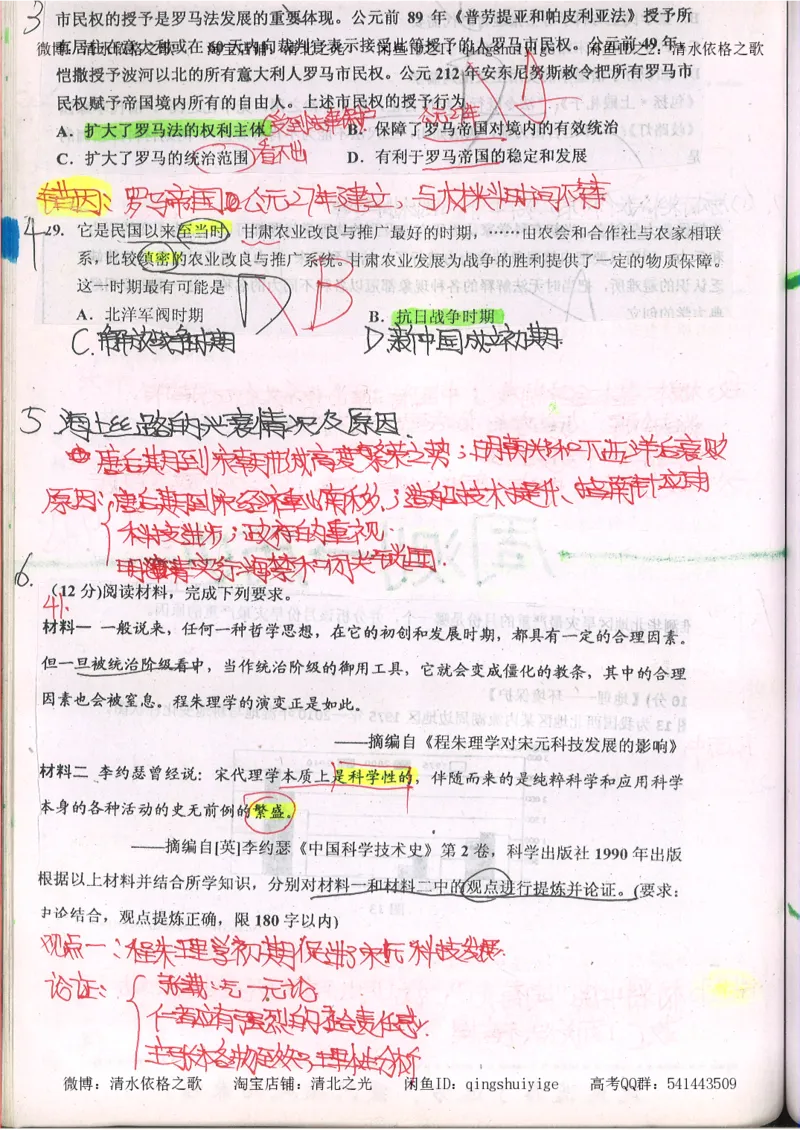 3
市民权的授予是罗马法发展的重要体现。公元前 89 年《普劳提亚和帕皮利亚法》授予所
有居住在意大利或在 60 天内向裁判官表示接受此等授予的人罗马市民权。公元前 49 年,
微博：清水依格之歌 淘宝店铺：清北之光 闲鱼ID1：qingshuiyige 闲鱼ID2：清水依格之歌
恺撒授予波河以北的所有意大利人罗马市民权。公元 212 年安东尼努斯敕令把所有罗马市
民权赋予帝国境内所有的自由人。上述市民权的授予行为
A．扩大了罗马法的权利主体 受到法律保护 B．保障了罗马帝国对境内的有效统治
C．扩大了罗马的统治范围 看不出 D．有利于罗马帝国的稳定和发展
错因：罗马帝国 公元27年建立，与水材料时间不符
4
29. 它是民国以来至当时，甘肃农业改良与推广最好的时期，……由农会和合作社与农家相联
系，比较缜密的农业改良与推广系统。甘肃农业发展为战争的胜利提供了一定的物质保障。
这一时期最有可能是 D B
A．北洋军阀时期 B．抗日战争时期
C. 解放战争时期 D 新中国成立初期
5 海上丝路的兴衰情况及原因.
唐后期到宋朝形成高度繁荣之势；明朝郑和下西洋后衰败
原因：唐后期到宋经济重心南移；造船技术提升、指南针应用
科技进步；政府的重视
明清实行海禁和闭关政国.
6.
（12 分)阅读材料，完成下列要求。
41.
材料一 一般说来，任何一种哲学思想，在它的初创和发展时期，都具有一定的合理因素。
但一旦被统治阶级看中，当作统治阶级的御用工具，它就会变成僵化的教条，其中的合理
因素也会被窒息。程朱理学的演变正是如此。
——摘编自《程朱理学对宋元科技发展的影响》
材料二 李约瑟曾经说：宋代理学本质上是科学性的，伴随而来的是纯粹科学和应用科学
本身的各种活动的史无前例的繁盛。
——摘编自[英]李约瑟《中国科学技术史》第 2 卷，科学出版社 1990 年出版
根据以上材料并结合所学知识，分别对材料一和材料二中的观点进行提炼并论证。(要求：
史论结合，观点提炼正确，限 180 字以内)
观点一：程朱理学初期促进了宋元科技发展.
论证： 张载：气一元论
仁者应有强烈的社会责任感.
主张格物致知
微博：清水依格之歌 淘宝店铺：清北之光 闲鱼ID：qingshuiyige 高考QQ群：541443509